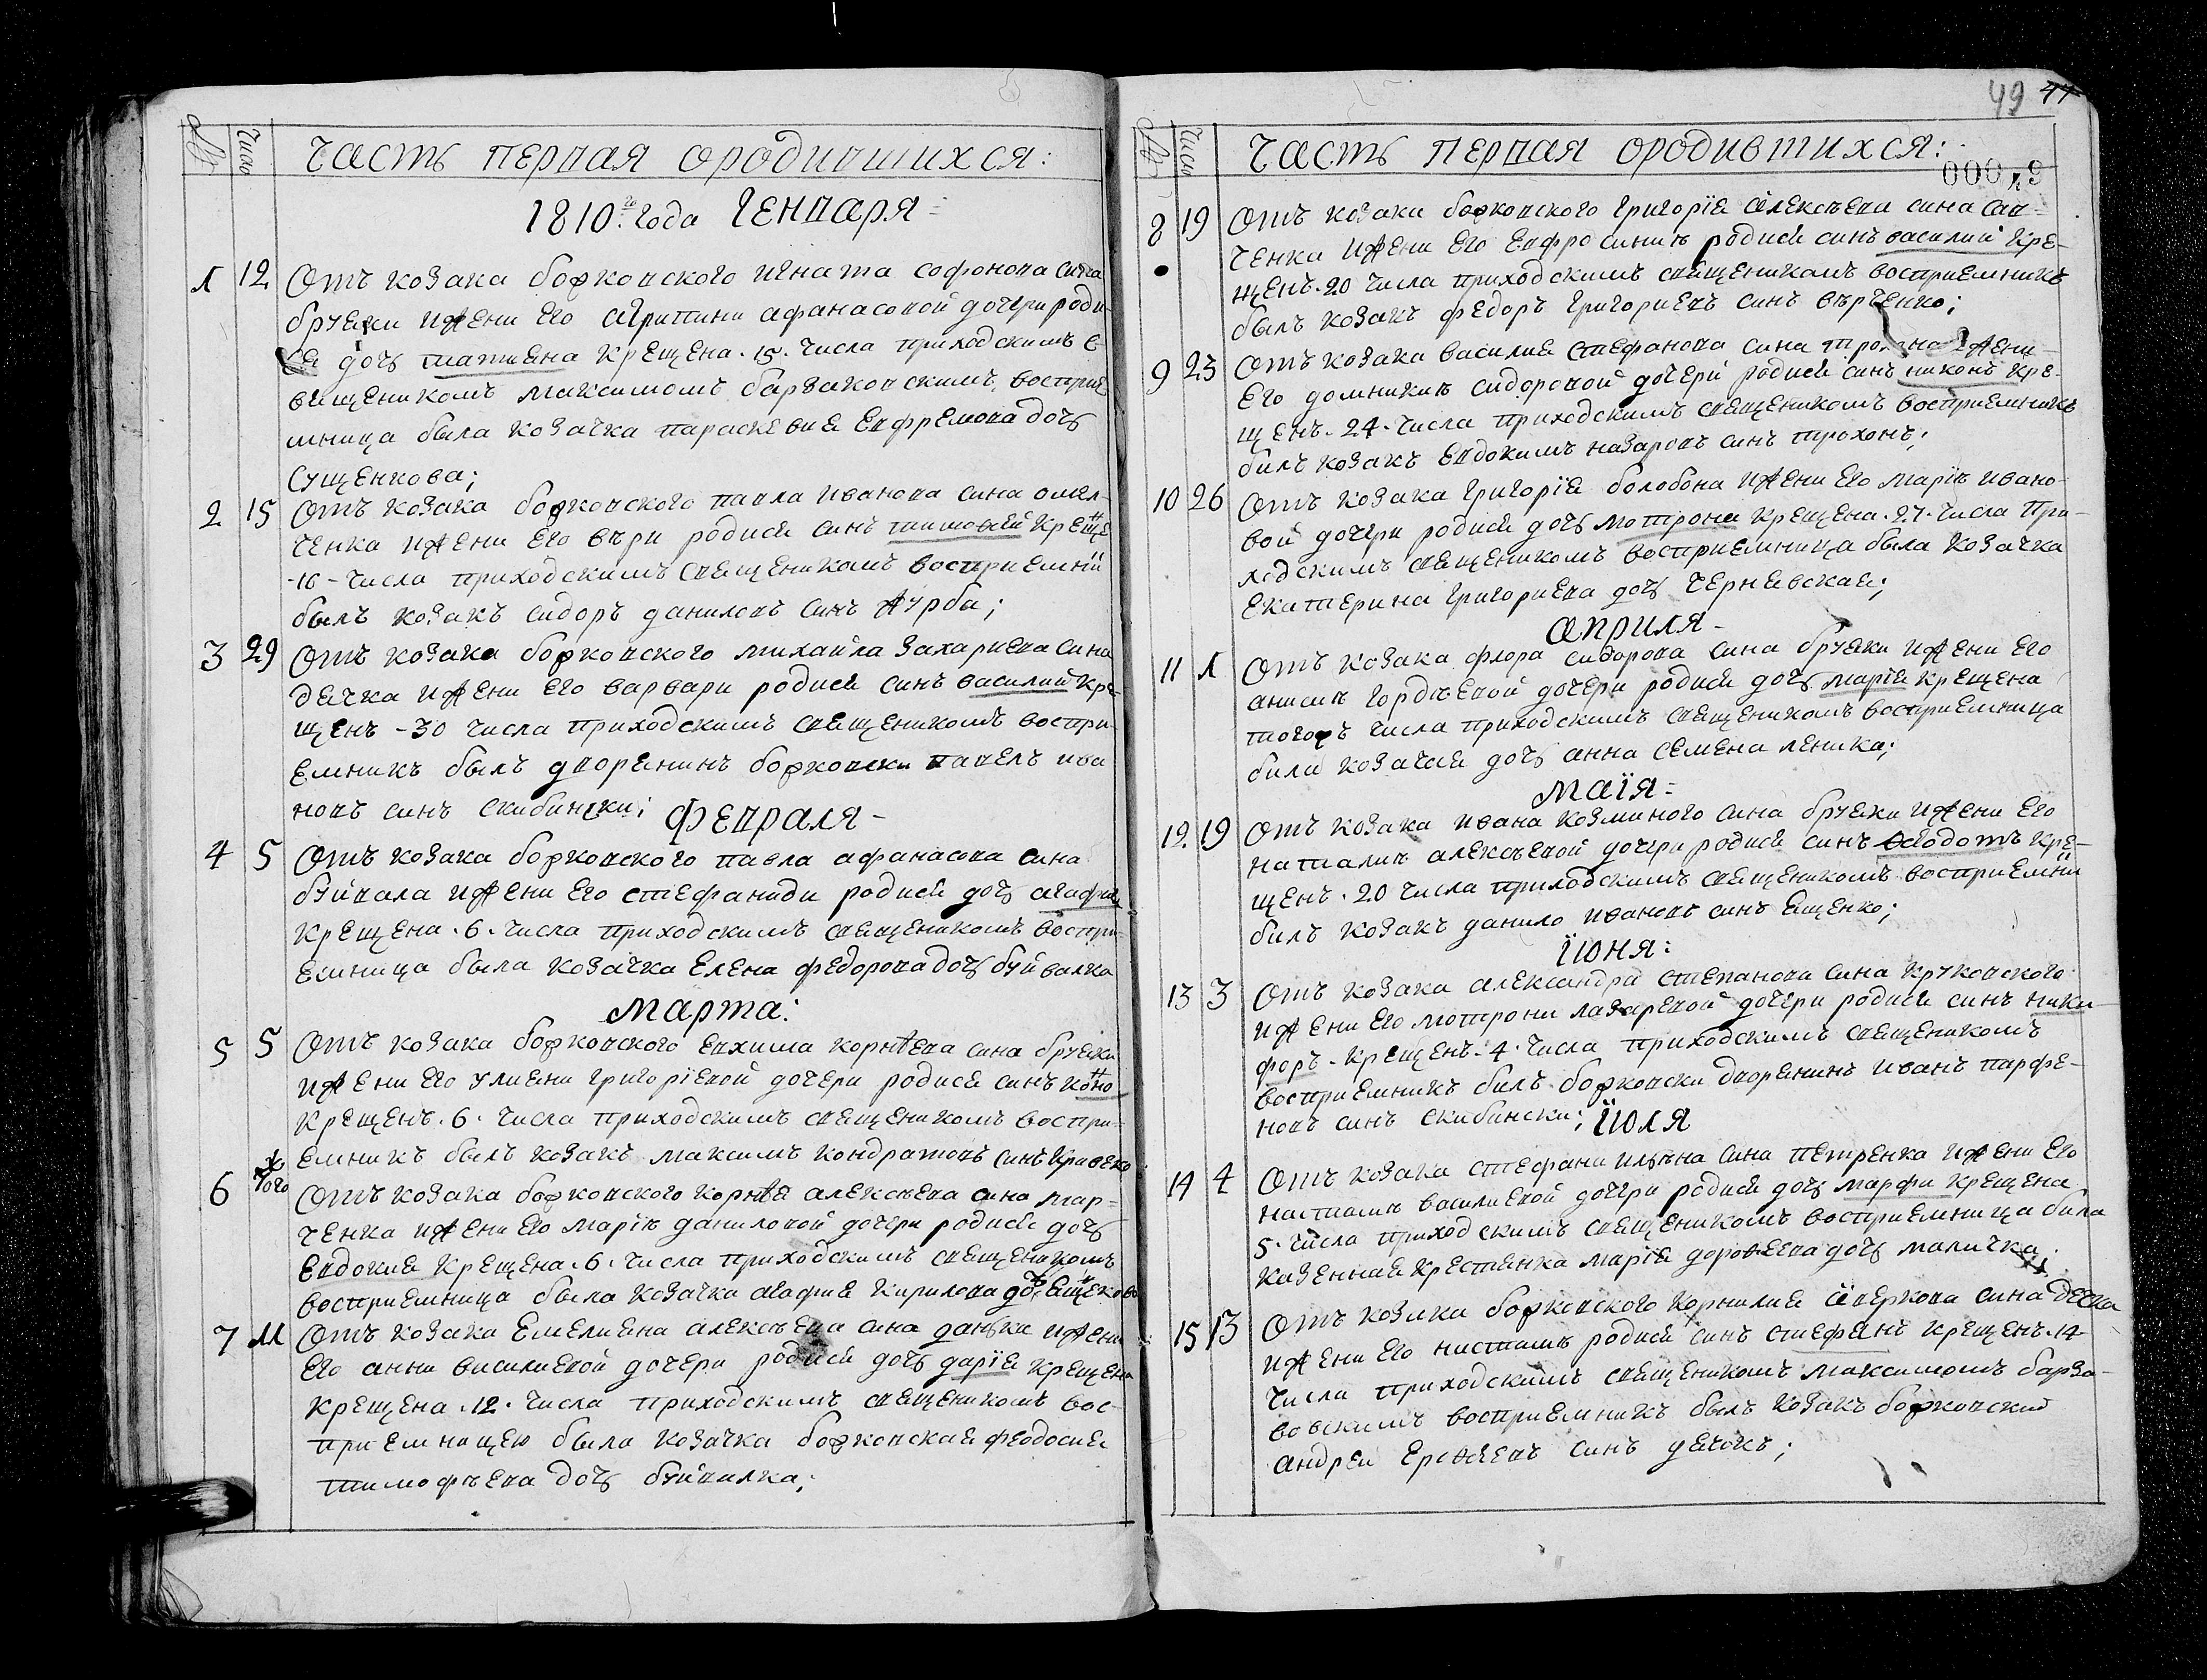 № Число Часть первая ородившихся:
1810го года Генваря =
1 12 Отъ козака борковского игната софонова сина
бруяки ижени его агрипини афанасовой дочери роди
ся дочь татияна крещена. 15. числа приходскимъ с
вященикомъ максимомъ барзаковскимъ, восприе
мница была козачка параскевия евфремова дочь
сущенкова;
2 15 Отъ козака борковского павла иванова сина омел-
ченка ижени его вѣри родися синъ тимоѳей креще
-16- числа приходскимъ священикомъ восприемни
былъ козакъ сидоръ даниловъ синъ журба;
3 29 Отъ козака борковского михаила захариева сина
дячка ижени его варвари родися синъ василий кре-
щенъ -30 числа приходскимъ священикомъ воспри-
емникъ былъ дворянинъ борковски павелъ ива
новъ синъ скибински; Февраля -
4 5 Отъ козака борковского павла афанасова сина
буйвала ижени его стефаниди родися дочь агафия
крещена. 6. числа приходскимъ священикомъ воспри-
емница была козачка елена федорова дочь буйвалка
Марта:
5 5 Отъ козака борковского евхима корнѣева сина бруяки
ижени его улияни григорїевой дочери родися синъ коно
крещенъ. 6. числа приходскимъ священикомъ воспри-
емникъ былъ козакъ максимъ кондратовъ синъ
6 того Отъ козака борковского корнѣя алексѣева сина мар-
ченка ижени его марїѣ даниловой дочери родися дочь
евдокия крещена. 6. числа приходскимъ священикомъ
восприемница была козачка агафия кирилова дочь ященкова
7 11 Отъ козака емелияна алексѣева сина данька ижени
его анни василиевой дочери родися дочь дарїя крещена
крещена. 12. числа приходскимъ священикомъ вос-
приемницею была козачка борковская феодосия
тимофѣева дочь буйвалка;
49 47
№ Число Часть первая ородившихся:
00049
8 19 Отъ козака борковского григорїя алексѣева сина сав=
ченки ижени его евфросинїѣ родися синъ василий кре-
щенъ. 20 числа приходскимъ священикомъ восприемникъ
былъ козакъ федоръ григориевъ синъ вѣрченко;
9 23 Отъ козака василия стефанова сина трохона ижени
его домникиѣ сидоровой дочери родися синъ никонъ кре-
щенъ. 24. числа приходскимъ священикомъ восприемникъ
билъ козакъ евдокимъ назаровъ синъ трохонъ;
10 26 Отъ козака григорїя болобона ижени его марїѣ ивано-
вой дочери родися дочь мотрона крещена. 27. числа при-
ходскимъ священикомъ восприемница была козачка
екатерина григориева дочь чернявская;
Априля -
11 1 Отъ козака флора сидорова сина бруяки ижени его
анисиѣ гордѣевой дочери родися дочь марїя крещена
тогоръ числа приходскимъ священикомъ восприемница
била козачая дочь анна семена леника;
Маїя =
12 19 Отъ козака ивана козминого сина бруяки ижени его
наталиѣ алексѣевой дочери родися синъ ѳеодотъ кре-
щенъ. 20 числа приходскимъ священикомъ восприемни
билъ козакъ данило ивановъ синъ ященко;
Їюня:
13 3 Отъ козака александра степанова сина круковского
ижени его мотрони лазаревой дочери родися синъ ники-
форъ - крещенъ - 4. числа приходскимъ священикомъ
восприемникъ билъ борковски дворянинъ иванъ парфе-
новъ синъ скибински; Їюля
14 4 Отъ козака стефана ильина сина петренка ижени его
настасиѣ василиевой дочери родися дочь марфа крещена
5. числа приходскимъ священикомъ восприемница била
казенная крестянка марїя дороѳеева дочь маличка;
15 13 Отъ козака борковского корнилия аверкова сина дячка
ижени его настасиѣ родися синъ стефанъ крещенъ. 14
числа приходскимъ священикомъ максимомъ барза-
ковскимъ восприемникъ былъ козакъ борковский
андреи ероѳеевъ синъ дячокъ;